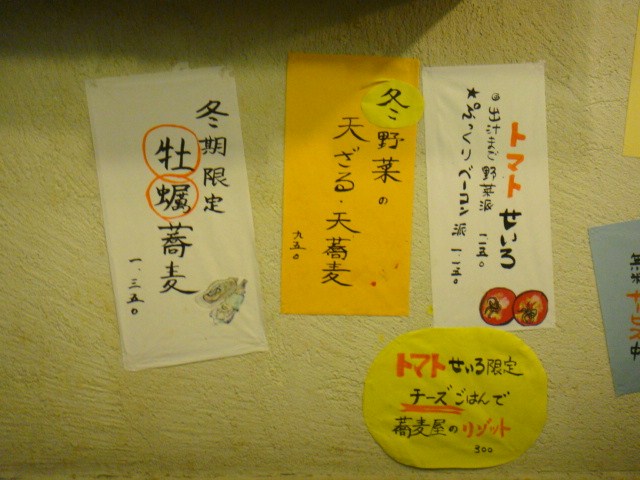 冬期限定
牡蠣蕎麦
一、三五〇
冬野菜の
天ざる・天蕎麦
九五〇
トマトせいろ
野菜派
★ぷっくりベーコン派 一、一五〇
トマトせいろ限定
チーズごはんで
蕎麦屋のリゾット
300